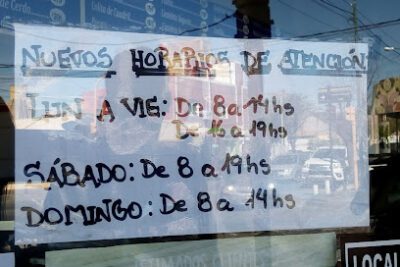 NUEVOS HORARIOS DE ATENCIÓN
LUN A VIE: De 8 a 14hs
De 16 a 19hs
SÁBADO: De 8 a 19hs
DOMINGO: De 8 a 14hs
LOCAL